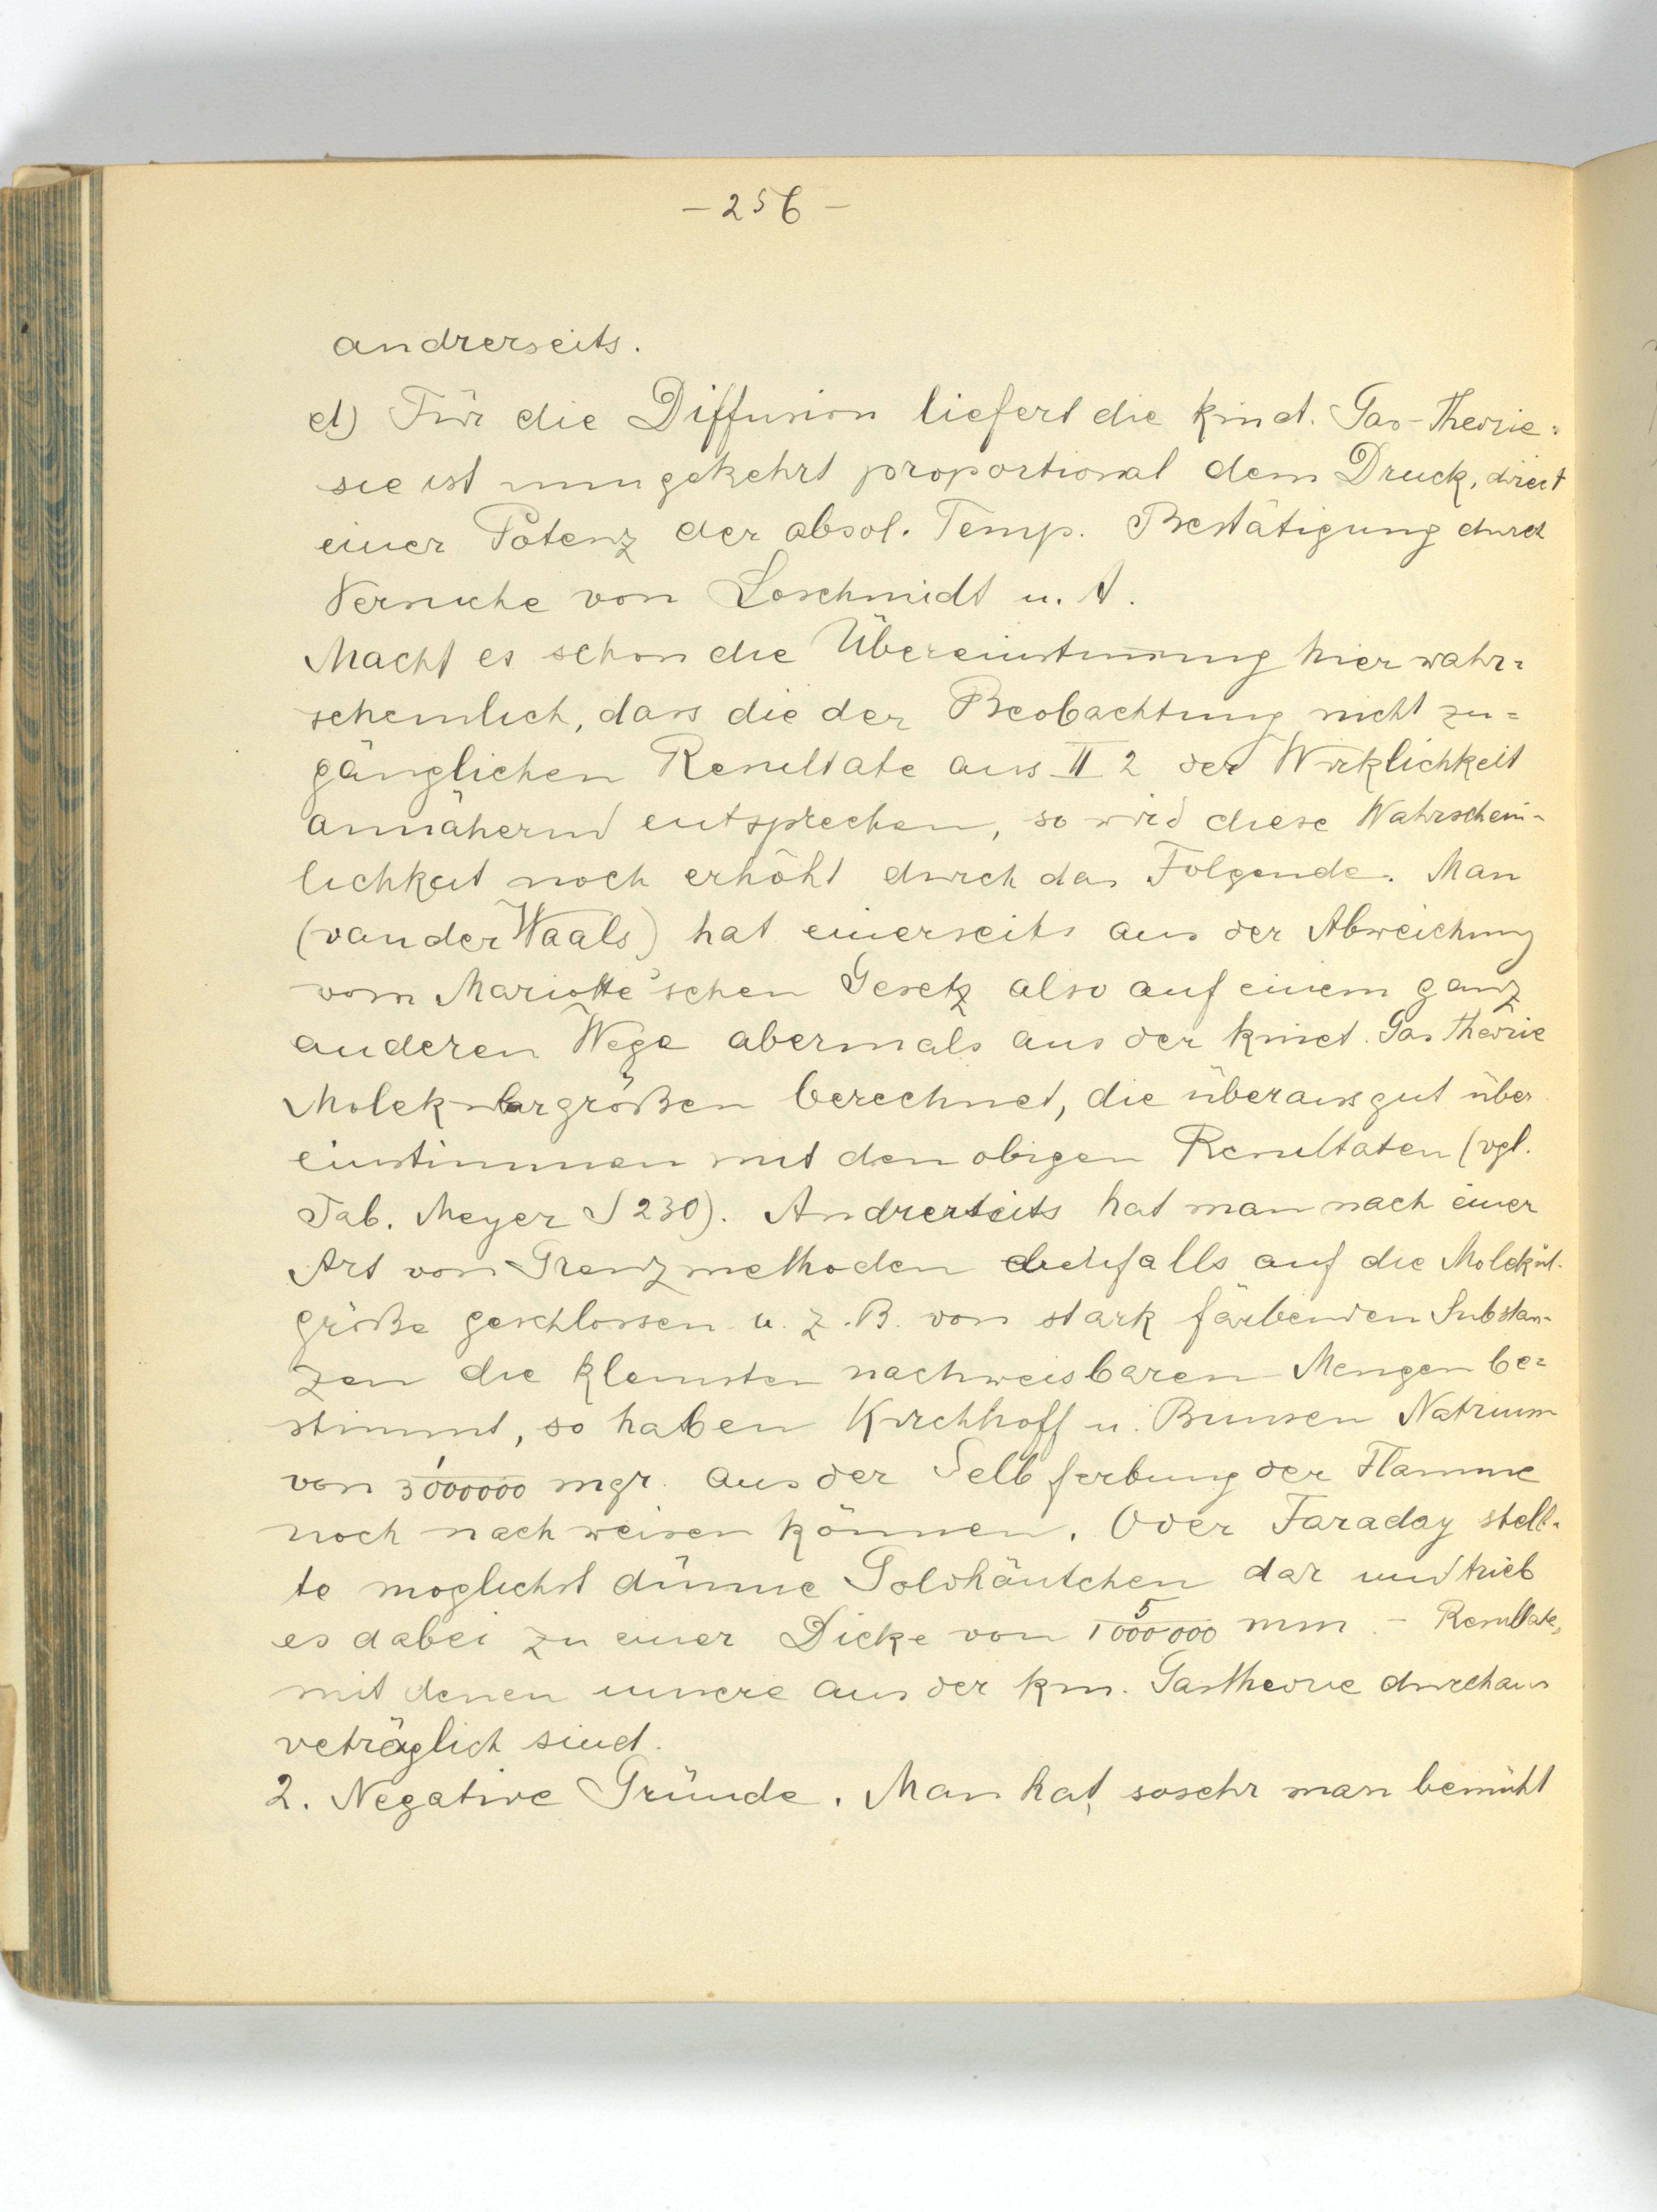 - 256 -
andrerseits.
d) Für die Diffusion liefert die kinet. Gas-Theorie:
sie ist umgekehrt proportional dem Druck, direct
einer Potenz der absol. Temp. Bestätigung durch
Versuche von Loschmidt u. A.
Macht es schon die Übereinstimmung hier wahr=
scheinlich, dass die der Beobachtung nicht zu=
gänglichen Resultate aus II 2 der Wirklichkeit
annähernd entsprechen, so wird diese Wahrschein-
lichkeit noch erhöht durch das Folgende. Man
(van der Waals) hat einerseits aus der Abweichung
vom Mariotte'schen Gesetz also auf einem ganz
anderen Wege abermals aus der kinet. Gas Theorie
Molekulargrößen berechnet, die überaus gut über
einstimmen mit den obigen Resultaten (vgl.
Tab. Meyer S 230). Andrerseits hat man nach einer
Art von Grenzmethoden ebenfalls auf die Molekül-
größe geschlossen u. z. B. von stark färbenden Substan-
zen die kleinsten nachweisbaren Mengen be=
stimmt, so haben Kirchhoff u. Bunsen Natrium
von 1/3000000 mgr. aus der Gelbferbung der Flamme
noch nachweisen können. Oder Faraday stell-
te moglichst dünne Goldhäutchen dar und trieb
es dabei zu einer Dicke von 5/1000000 mm. - Resultate,
mit denen unsere aus der kin. Gastheorie durchaus
veträglich sind.
2. Negative Gründe. Man hat, sosehr man bemüht